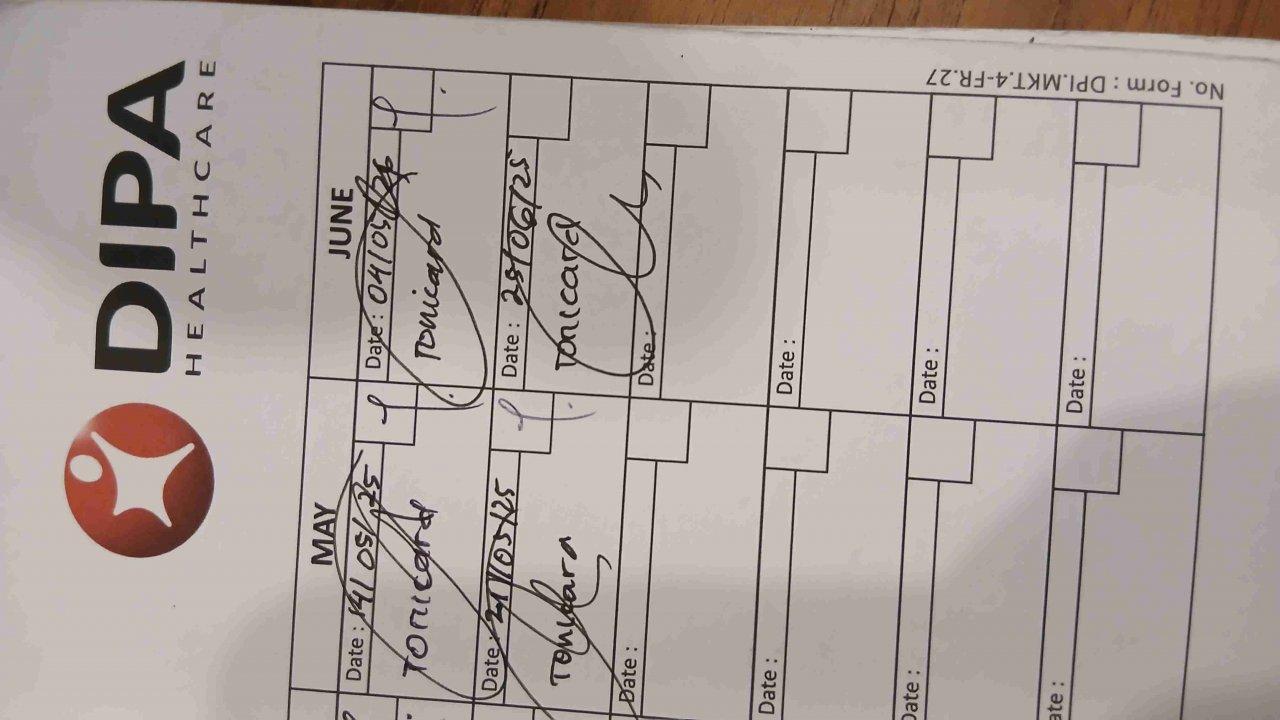 DIPA
HEALTHCARE
No. Form : DPI.MKT.4-FR.27
MAY
JUNE
Date : 14/05/25
TONICARD
Date : 04/05/
TONICARD
Date : 21/05/25
Date : 25/06/25
TONICARD
Date :
Date :
Date :
Date :
Date :
Date :
Date :
ate :